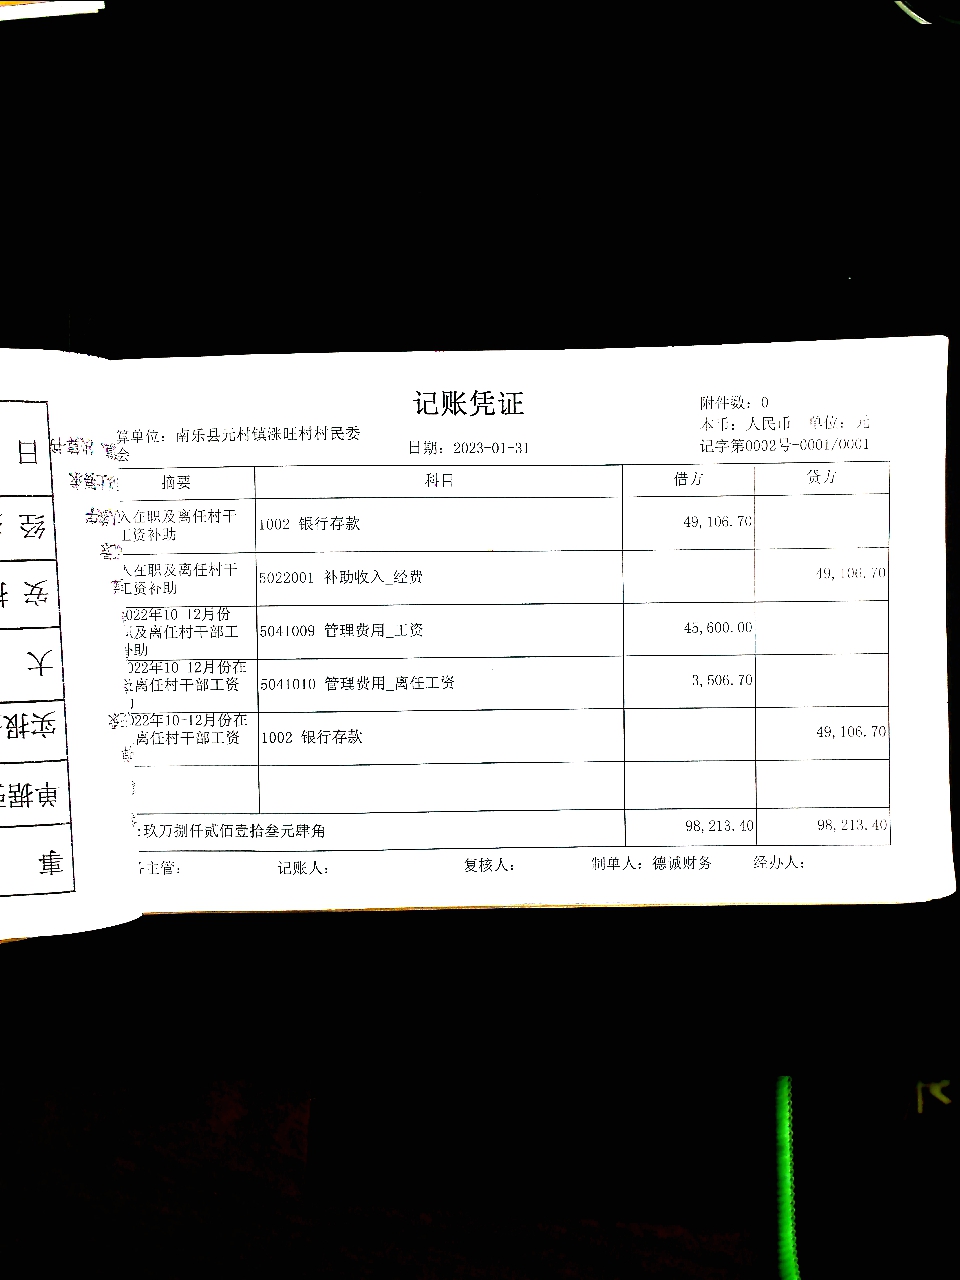 记账凭证
附件数：0
算单位：南乐县元村镇涨旺村村民委
会
本币：人民币 单位：元
日期：2023-01-31
记字第0002号-0001/0001
摘要 科目 借方 贷方
入在职及离任村干
工资补助
1002 银行存款 49,106.70
入在职及离任村干
工资补助
5022001 补助收入_经费 49,106.70
022年10-12月份
以及离任村干部工
补助
5041009 管理费用_工资 45,600.00
022年10-12月份在
离任村干部工资
5041010 管理费用_离任工资 3,506.70
22年10-12月份在
离任村干部工资
1002 银行存款 49,106.70
:玖万捌仟贰佰壹拾叁元肆角 98,213.40 98,213.40
主管： 记账人： 复核人： 制单人：德诚财务 经办人：
日
经
安
大
实报
单据
事